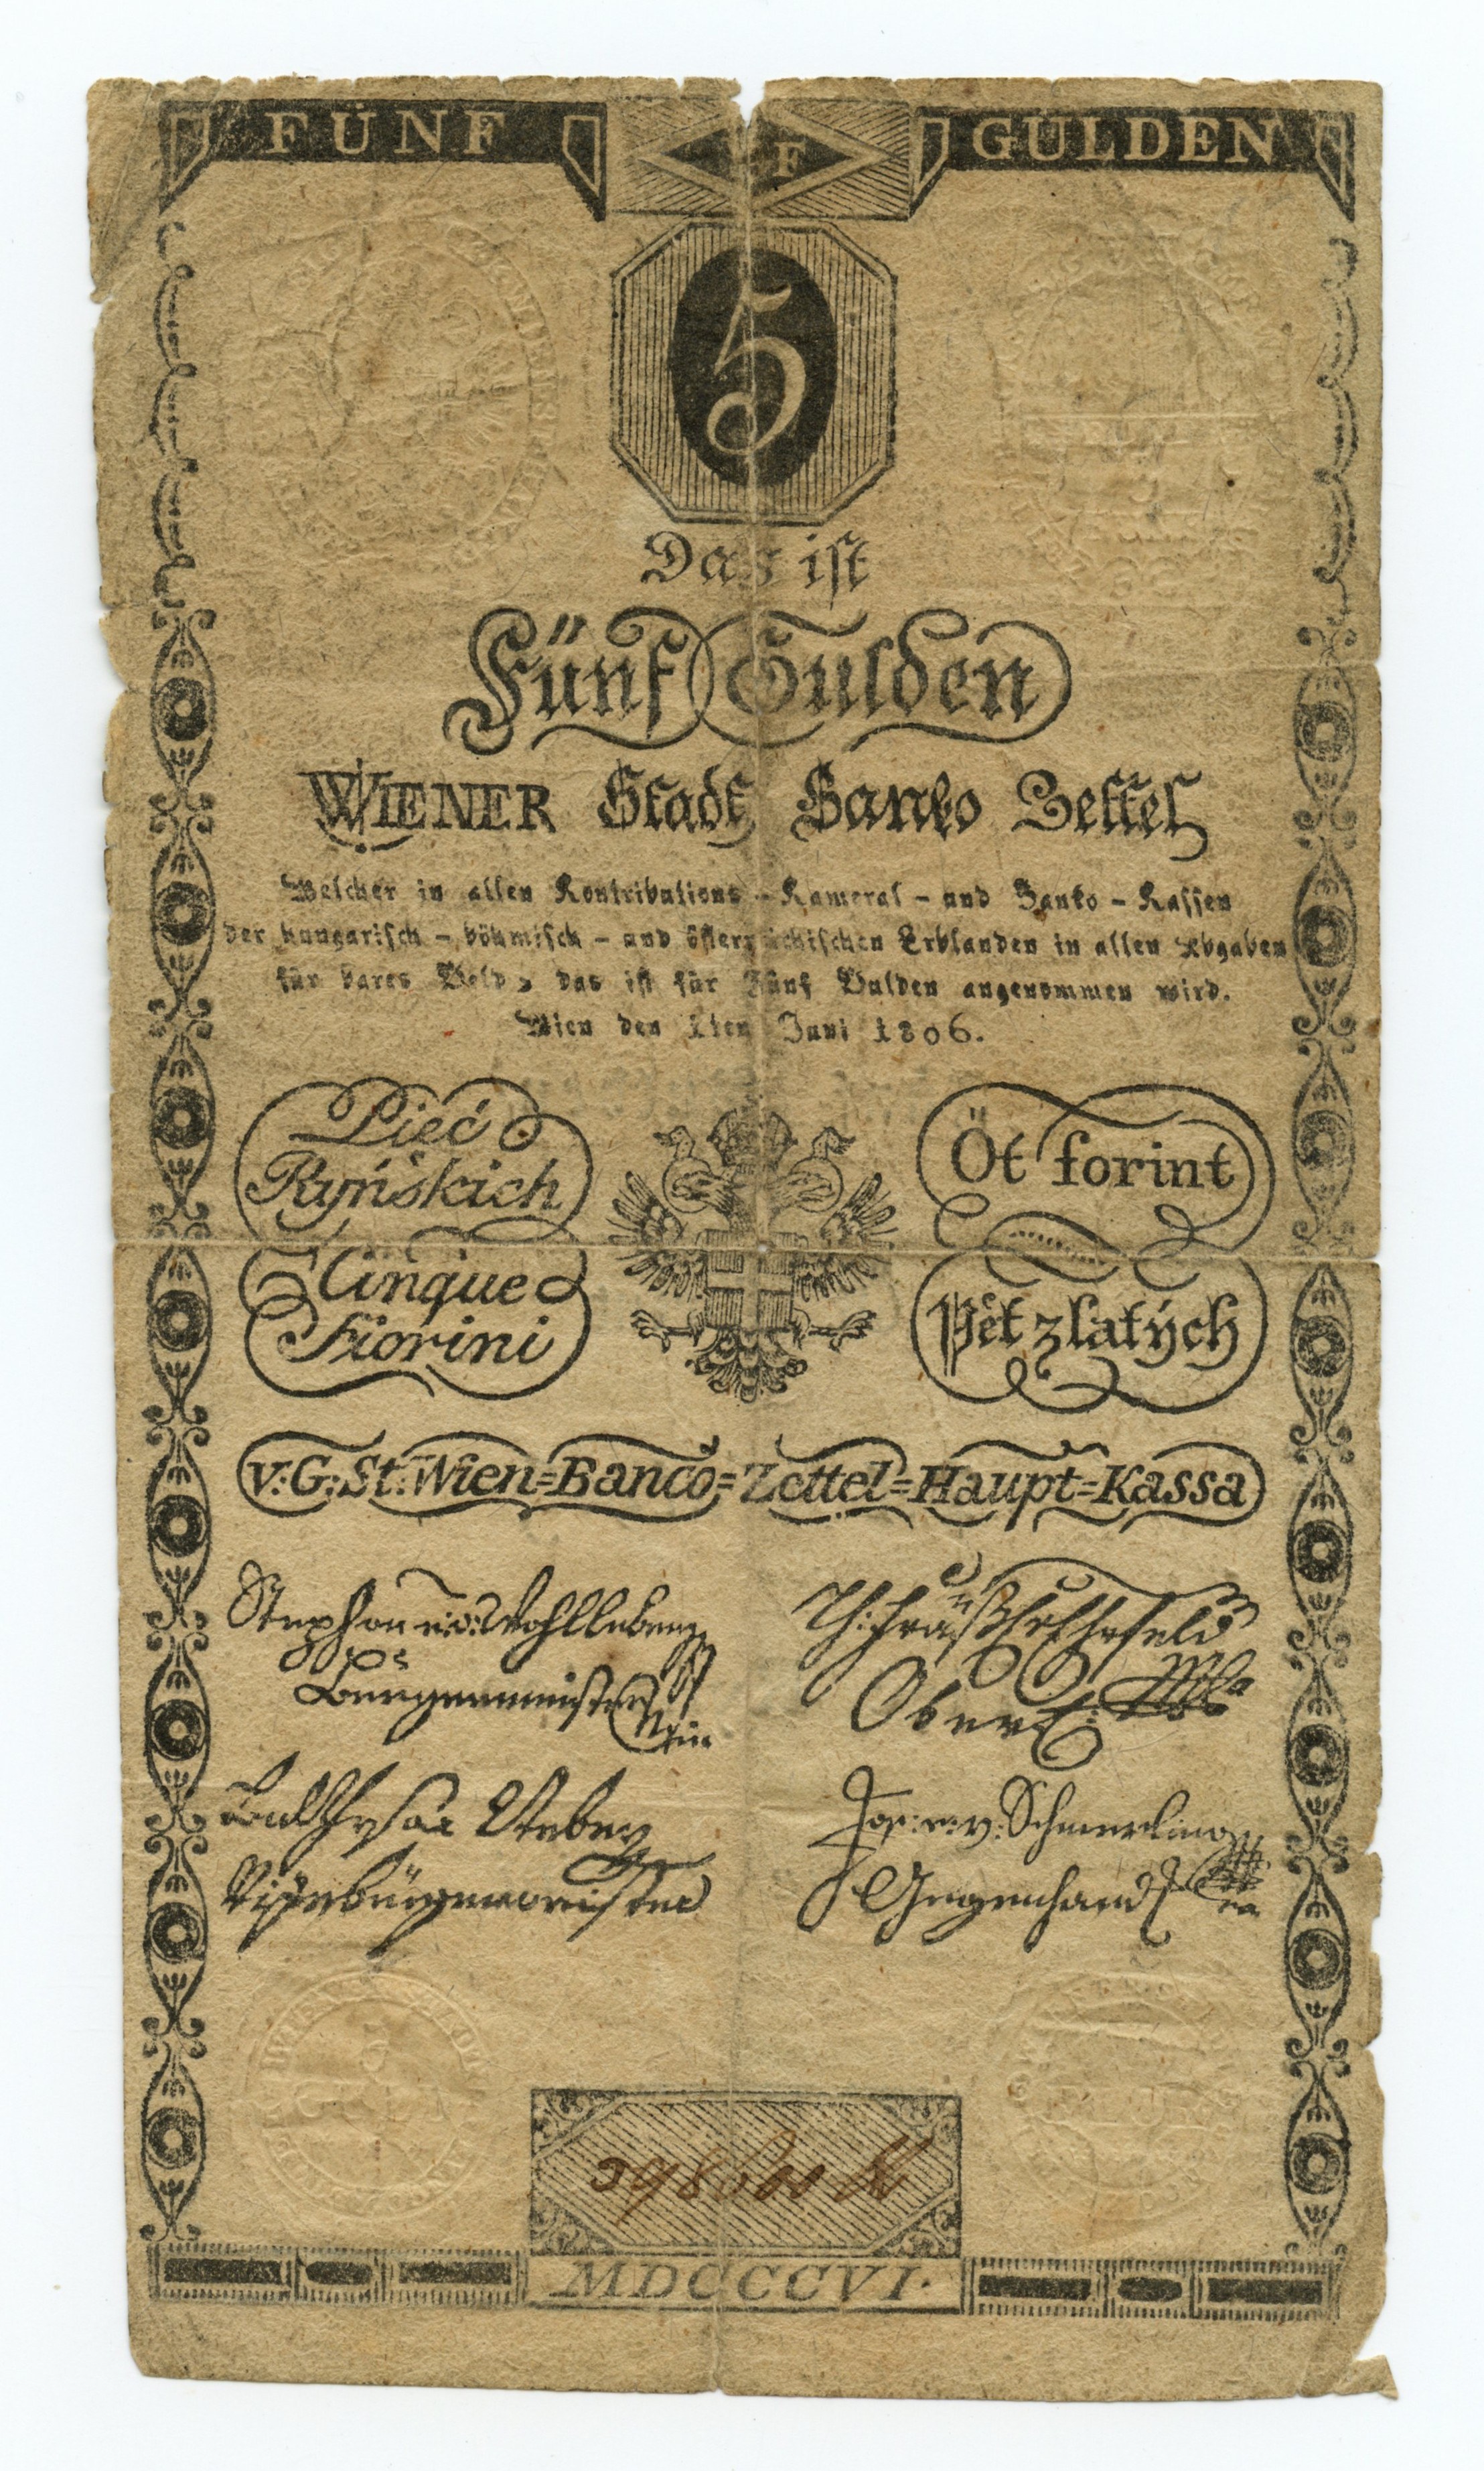 FÜNF F GULDEN
5
Das ist
Fünf Gulden
WIENER Stadt Banko Zettel
Welcher in allen Kontributions - Kameral - und Banko - Kassen
der hungarisch - böhmisch - und österreichischen Erblanden in allen Abgaben
für bares Geld, das ist für Fünf Gulden angenommen wird.
Wien den 1ten Juni 1806.
Pięć
Ryńskich
Öt forint
Cinque
Fiorini
Pět zlatých
v:G:St:Wien=Banco=Zettel=Haupt=Kassa
Stephan Wohlleben
Burgermeister
Ober
Balthasar Weber
Vizebürgermeister
Jos: v: Schmerling
Gegenhand
MDCCCVI.